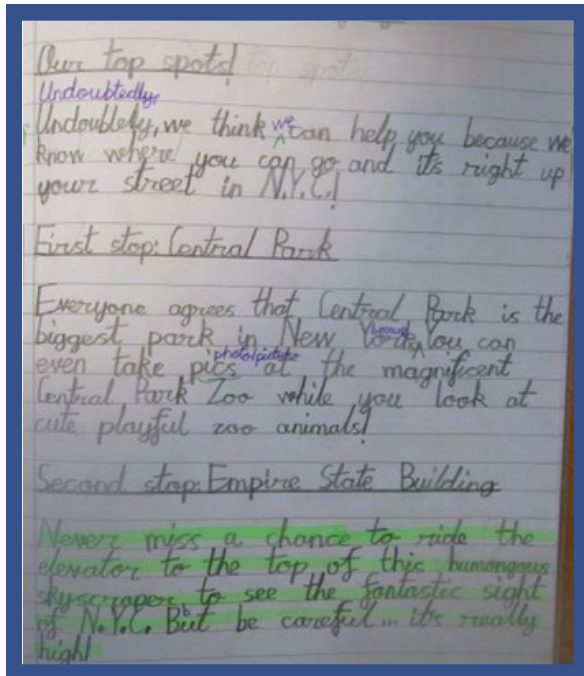 Our top spots!
Undoubtedly,
Undoublety, we think we can help you because we
know where you can go and it's right up
your street in N.Y.C.!
First stop: Central Park
Everyone agrees that Central Park is the
biggest park in New York, because You can
photo/picture
even take pics at the magnificent
Central Park Zoo while you look at
cute playful zoo animals!
Second stop: Empire State Building
Never miss a chance to ride the
elevator to the top of this humongous
skyscraper to see the fantastic sight
of N.Y.C. But be careful... it's really
high!